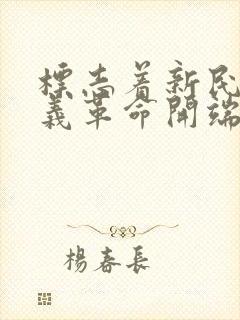 標志着新民
義革命開端
楊春長